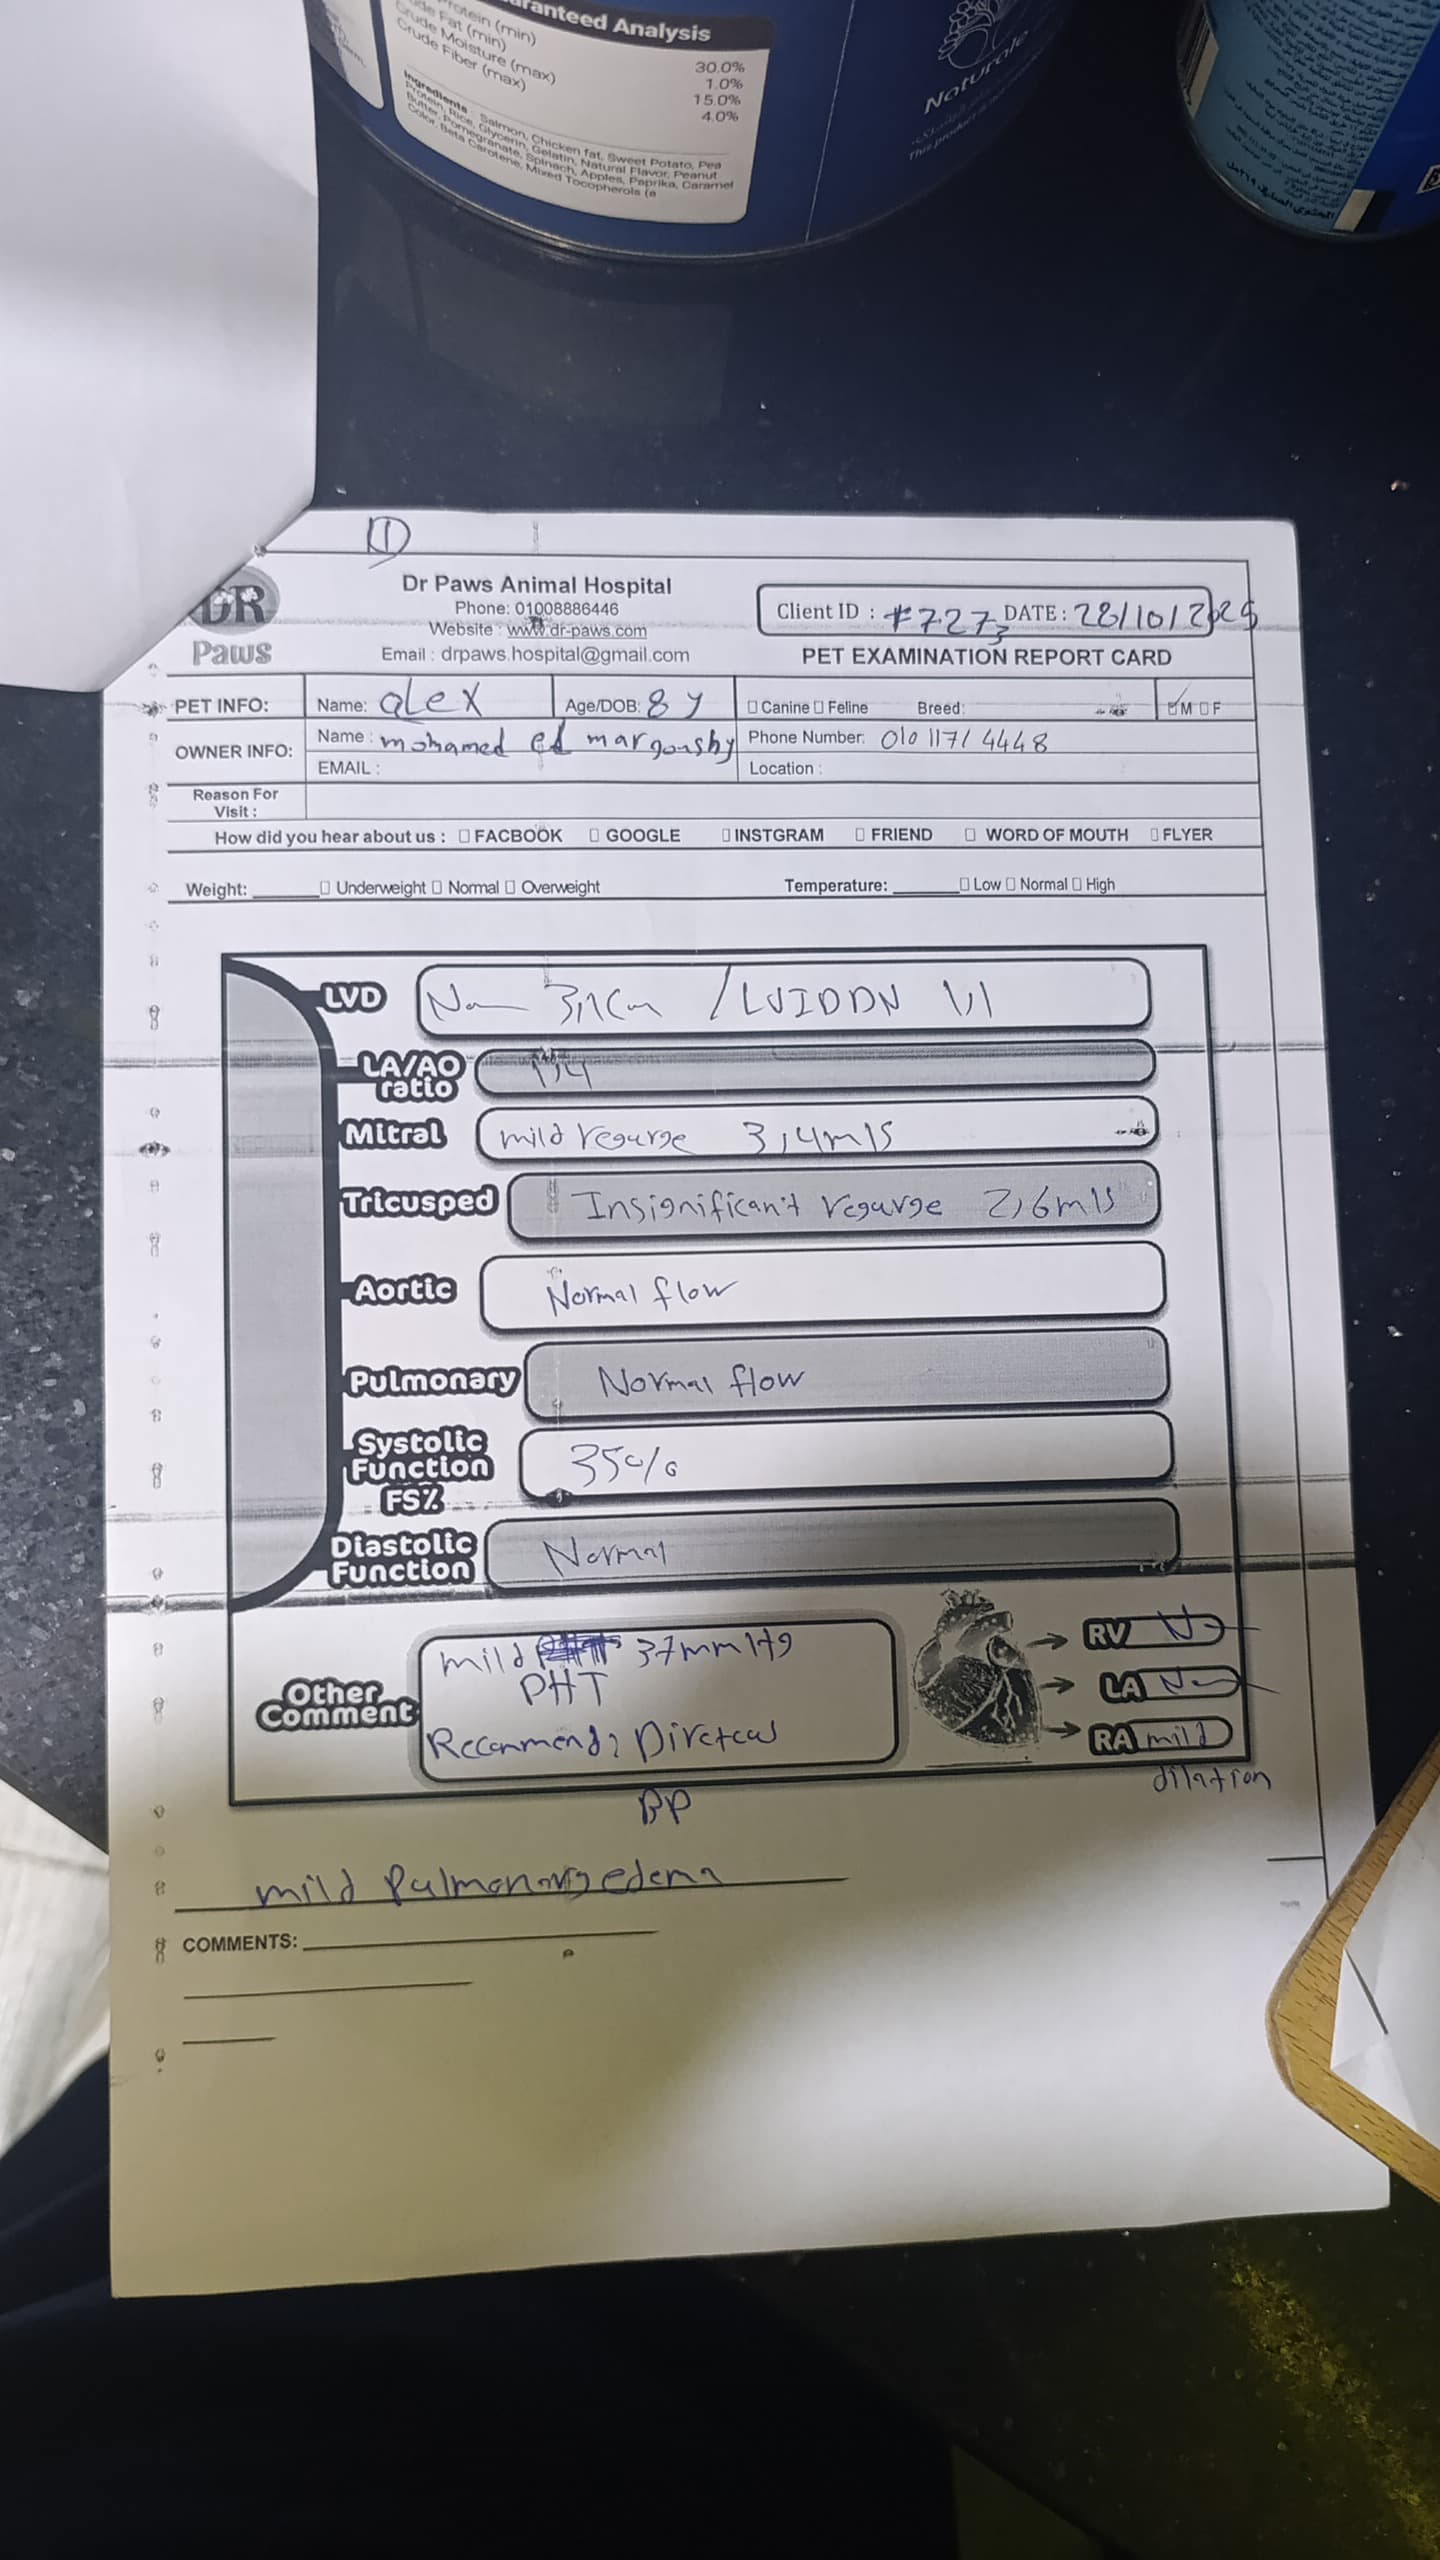 ranteed Analysis
rotein (min)
de Fat (min)
Crude Moisture (max)
Crude Fiber (max)
30.0%
1.0%
15.0%
4.0%
Ingredients Salmon, Chicken fat, Sweet Potato, Pea
Protein, Rice, Glycerin, Gelatin, Natural Flavor, Peanut
Butter, Pomegranate, Spinach, Apples, Paprika, Caramel
Color, Beta Carotene, Mixed Tocopherols (a
Naturale
This product is
1
DR
Paws
Dr Paws Animal Hospital
Phone: 01008886446
Website : www.dr-paws.com
Email : drpaws.hospital@gmail.com
Client ID : #7273 DATE: 28/10/2025
PET EXAMINATION REPORT CARD
PET INFO: Name: alex Age/DOB: 8 y Canine Feline Breed: M F
OWNER INFO: Name : mohamed el margoushy Phone Number: 010 1171 4448
EMAIL : Location :
Reason For
Visit :
How did you hear about us : FACBOOK GOOGLE INSTGRAM FRIEND WORD OF MOUTH FLYER
Weight: Underweight Normal Overweight Temperature: Low Normal High
LVD 3,1cm / LVIDDN 1,1
LA/AO
ratio 1,4
Mitral mild regurge 3,4m/s
Tricusped Insignificant regurge 2,6m/s
Aortic Normal flow
Pulmonary Normal flow
Systolic
Function
FS% 35%
Diastolic
Function Normal
Other
Comment
mild 37mmHg
PHT
Recommend:
BP
RV
LA
RA mild
dilation
mild Pulmonary edema
COMMENTS: